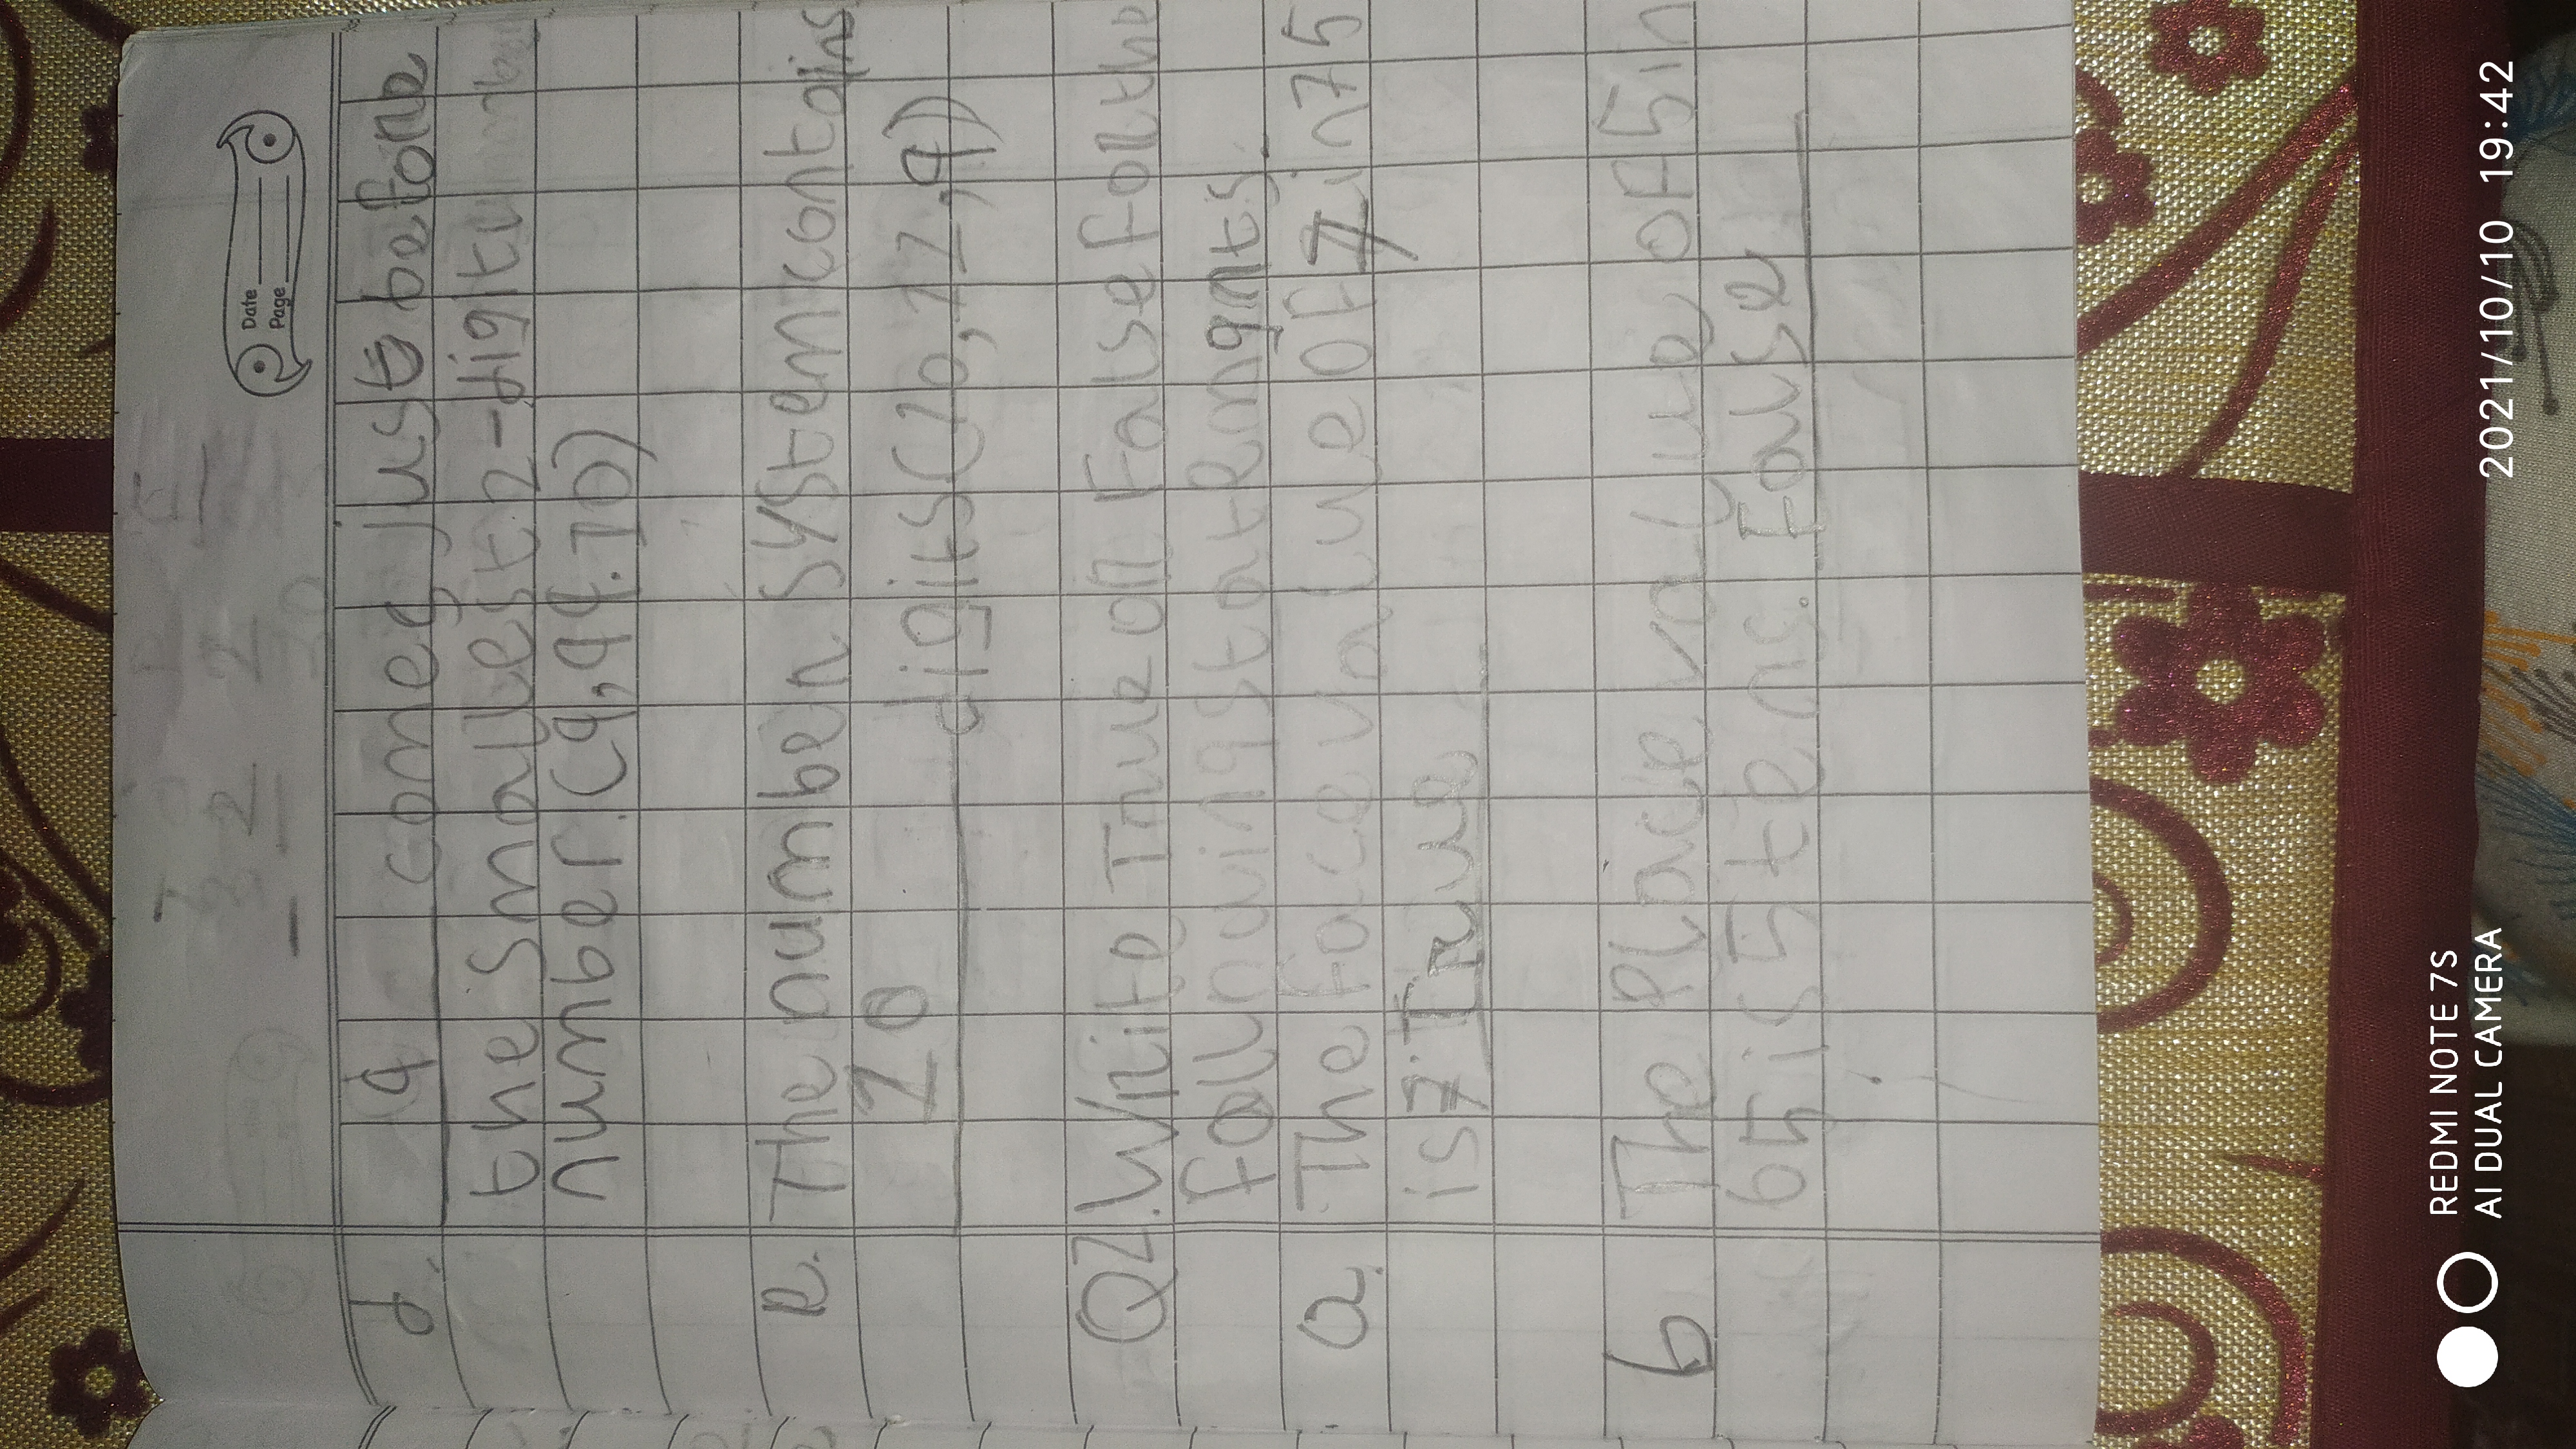 Date
Page
d. 9 comes just before
the smallest 2-digit
number. (9, 99. 10)
e. The number system contains
10 digits (10, 11, 9)
Q2. Write True or False for the
following statemgnts.
a. The face value of 7 in 75
is 7. True
b The place value of 5 in
65 is 5 tens. False
REDMI NOTE 7S
AI DUAL CAMERA
2021/10/10 19:42